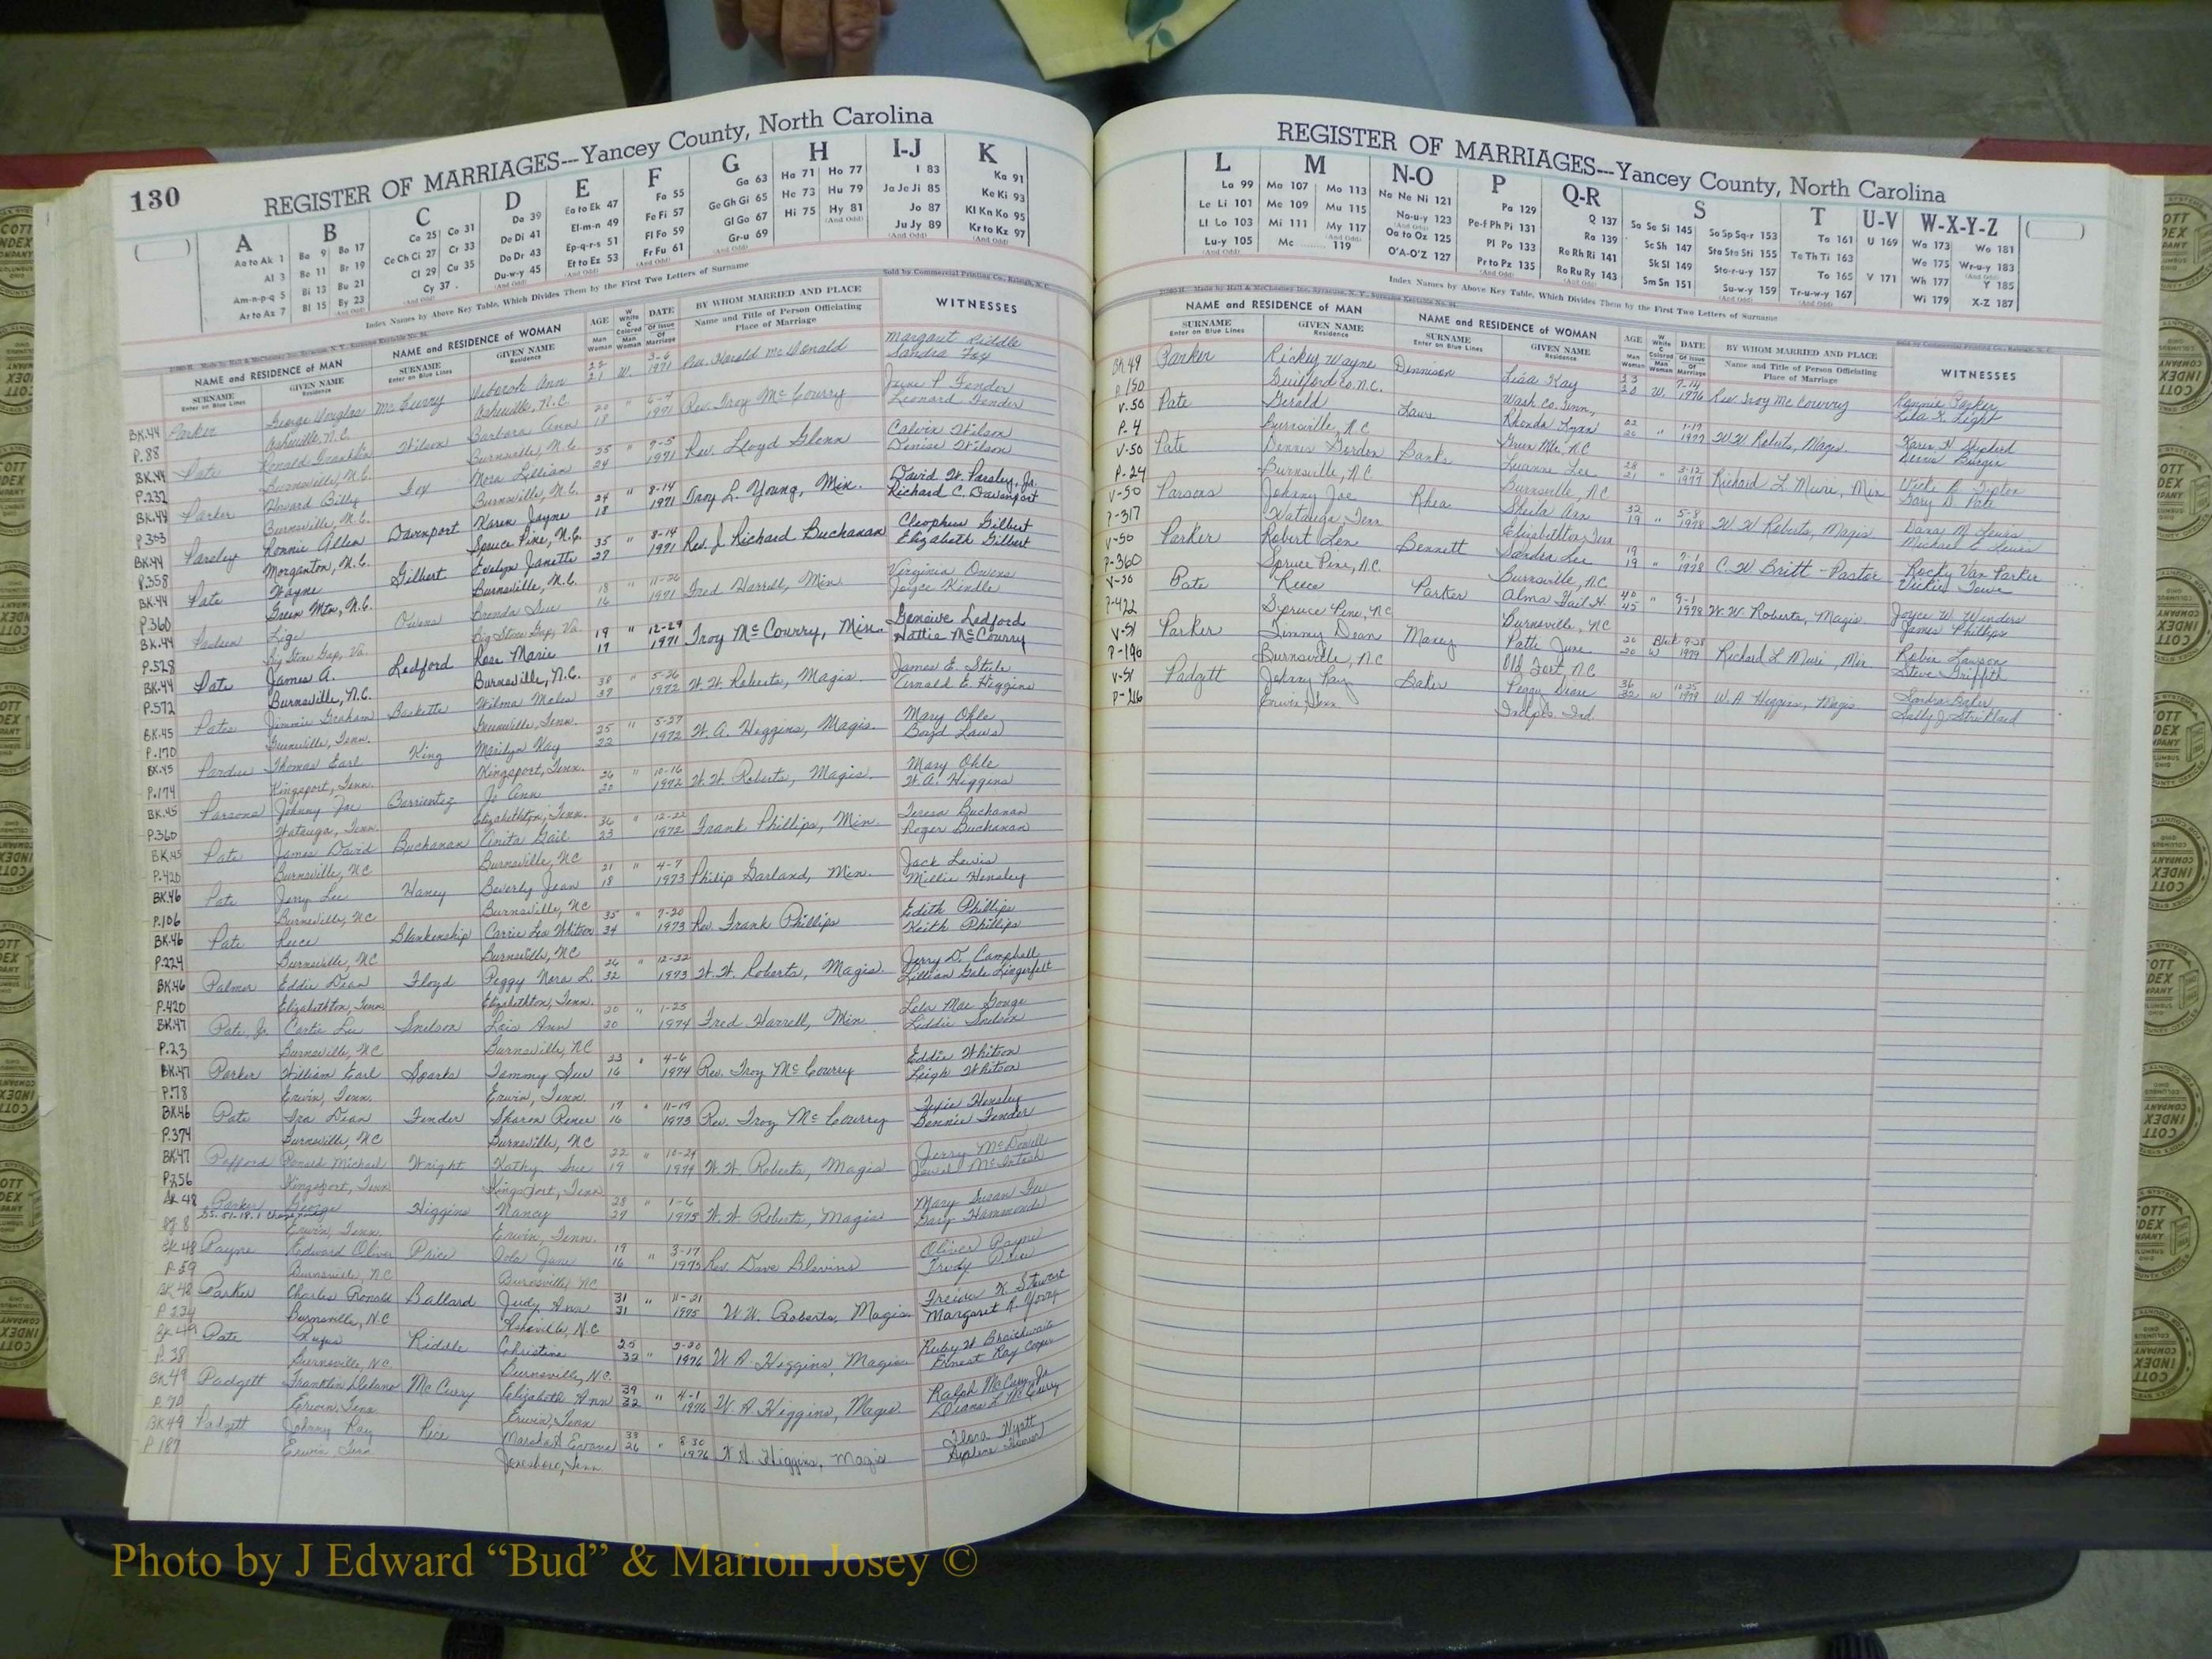 130
REGISTER OF MARRIAGES---Yancey County, North Carolina
A B C D E F G H I-J K
Aa to Ak 1 Ba 9 Bo 17 Ca 25 Co 31 Da 39 Ea to Ek 47 Fa 55 Ga 63 Ha 71 Ho 77 I 83 Ka 91
Al 3 Be 11 Br 19 Ce Ch Ci 27 Cr 33 De Di 41 El-m-n 49 Fe Fi 57 Ge Gh Gi 65 He 73 Hu 79 Ja Je Ji 85 Ke Ki 93
Am-n-p-q 5 Bi 13 Bu 21 Cl 29 Cu 35 Do Dr 43 Ep-q-r-s 51 Fl Fo 59 Gl Go 67 Hi 75 Hy 81 Jo 87 Kl Kn Ko 95
Ar to Az 7 Bl 15 By 23 Cy 37 Du-w-y 45 Et to Ez 53 Fr Fu 61 Gr-u 69 Ju Jy 89 Kr to Kz 97
Index Names by Above Key Table, Which Divides Them by the First Two Letters of Surname
Sold by Commercial Printing Co., Raleigh, N. C.
NAME and RESIDENCE of MAN NAME and RESIDENCE of WOMAN AGE DATE BY WHOM MARRIED AND PLACE WITNESSES
SURNAME GIVEN NAME SURNAME GIVEN NAME Name and Title of Person Officiating
Enter on Blue Lines Residence Enter on Blue Lines Residence Place of Marriage
BK.44 Parker George Douglas McCurry Deborah Ann 22 W. 3-6 Rev. Harold McDonald Margaret Riddle
P.88 Asheville, N.C. Asheville, N.C. 21 1971 Sandra Fox
BK.44 Pate Ronald Franklin Wilson Barbara Ann 20 " 6-4 Rev. Troy McCourry June P. Fender
P.232 Burnsville, N.C. Burnsville, N.C. 18 1971 Leonard Fender
BK.44 Parker Howard Billy Fox Nora Lillian 25 " 7-5 Rev. Lloyd Glenn Calvin Wilson
P.303 Burnsville, N.C. Burnsville, N.C. 24 1971 Denise Wilson
BK.44 Parsley Ronnie Allen Davenport Karen Jayne 24 " 8-14 Troy L. Young, Min. David W. Parsley, Jr.
P.358 Morganton, N.C. Spruce Pine, N.C. 18 1971 Richard C. Davenport
BK.44 Pate Wayne Gilbert Evelyn Janette 35 " 8-14 Rev. J. Richard Buchanan Cleophus Gilbert
P.360 Green Mtn, N.C. Burnsville, N.C. 27 1971 Elizabeth Gilbert
BK.44 Lige Owens Brenda Sue 18 " 11-26 Fred Harrell, Min. Virginia Owens
P.528 Big Stone Gap, Va. Big Stone Gap, Va. 16 1971 Joyce Kindle
BK.44 Pate James A. Ledford Rose Marie 19 " 12-29 Troy McCourry, Min. Geneive Ledford
P.572 Burnsville, N.C. Burnsville, N.C. 17 1971 Hattie McCourry
BK.45 Pates Jimmie Graham Baskette Wilma 38 " 5-26 W.W. Roberts, Magis. James E. Steile
P.170 Greenville, Tenn. Greenville, Tenn. 37 1972 Arnold E. Higgins
BK.45 Pardue Thomas Earl King Marilyn Kay 25 " 5-27 W.A. Higgins, Magis. Mary Ohle
P.174 Kingsport, Tenn. Kingsport, Tenn. 22 1972 Boyd Laws
BK.45 Parsons Johnny Joe Barrientez Jo Ann 26 " 10-16 W.W. Roberts, Magis. Mary Ohle
P.360 Watauga, Tenn. Elizabethton, Tenn. 20 1972 W.A. Higgins
BK.45 Pate James David Buchanan Anita Gail 36 " 12-22 Frank Phillips, Min. Teresa Buchanan
P.420 Burnsville, NC Burnsville, NC 23 1972 Roger Buchanan
BK.46 Pate Jerry Lee Haney Beverly Jean 21 " 4-7 Philip Garland, Min. Jack Lewis
P.106 Burnsville, NC Burnsville, NC 18 1973 Millie Hensley
BK.46 Pate Reece Blankenship Carrie Lea Whitson 35 " 7-20 Rev. Frank Phillips Edith Phillips
P.224 Burnsville, NC Burnsville, NC 34 1973 Keith Phillips
BK.46 Palmer Eddie Dean Floyd Peggy Nora L. 26 " 12-22 W.W. Roberts, Magis. Jerry D. Campbell
P.420 Elizabethton, Tenn. Elizabethton, Tenn. 32 1973 Lillian Gale Lingerfelt
BK.47 Pate, Jr. Curtis Lee Snelson Lois Ann 20 " 1-25 Fred Harrell, Min Lola Mae Gouge
P.23 Burnsville, NC Burnsville, NC 20 1974 Liddie Snelson
BK.47 Parker William Earl Sparks Tammy Sue 23 " 4-6 Rev. Troy McCourry Eddie Whitson
P.78 Erwin, Tenn. Erwin, Tenn. 16 1974 Leigh Whitson
BK.46 Pate Ira Dean Fender Sharon Renee 17 " 11-19 Rev. Troy McCourry Texie Hensley
P.374 Burnsville, NC Burnsville, NC 16 1973 Bennie Fender
BK.47 Pafford Ronald Michael Wright Kathy Sue 22 " 10-24 W.W. Roberts, Magis Jerry McDowell
P.256 Kingsport, Tenn Kingsport, Tenn 19 1974 Jewel McIntosh
BK 48 Parker George Higgins Nancy 28 " 1-6 W.W. Roberts, Magis Mary Susan Fee
Pg. 8 Erwin, Tenn. Erwin, Tenn. 29 1975 Gary Hammonds
BK 48 Payne Edward Oliver Price Iola Jane 19 " 3-17 Rev. Dave Blevins Oliver Payne
P. 59 Burnsville, NC Burnsville, NC 16 1975 Trudy Price
BK 48 Parker Charles Ronald Ballard Judy Ann 31 " 11-21 W.W. Roberts, Magis. Freida K. Stewart
P 234 Burnsville, N.C Asheville, N.C 31 1975 Margaret R. Young
BK 49 Pate Rufus Riddle Christine 25 " 2-20 W A. Higgins, Magis. Ruby H Braithwaite
P. 38 Burnsville, NC. Burnsville, N.C. 32 1976 Ernest Ray Cooper
BK 49 Padgett Franklin Delano McCurry Elizabeth Ann 39 " 4-1 W. A Higgins, Magis. Ralph McCurry Jr
P. 70 Erwin, Tenn Erwin, Tenn 32 1976 Diane L McCurry
BK 49 Padgett Johnny Ray Rice Marsha A Evans 33 " 8-30 W A. Higgins, Magis Flora Wyatt
P 187 Erwin Tenn Jonesboro, Tenn 26 1976
REGISTER OF MARRIAGES---Yancey County, North Carolina
L M N-O P Q-R S T U-V W-X-Y-Z
La 99 Ma 107 Mo 113 Na Ne Ni 121 Pa 129 Q 137 Sa Se Si 145 So Sp Sq-r 153 Ta 161 U 169 Wa 173 Wo 181
Le Li 101 Me 109 Mu 115 No-u-y 123 Pe-f Ph Pi 131 Ra 139 Sc Sh 147 Sta Ste Sti 155 Te Th Ti 163 We 175 Wr-u-y 183
Ll Lo 103 Mi 111 My 117 Oa to Oz 125 Pl Po 133 Re Rh Ri 141 Sk Sl 149 Sto-r-u-y 157 To 165 V 171 Wh 177 Y 185
Lu-y 105 Mc 119 O'A-O'Z 127 Pr to Pz 135 Ro Ru Ry 143 Sm Sn 151 Su-w-y 159 Tr-u-w-y 167 Wi 179 X-Z 187
Index Names by Above Key Table, Which Divides Them by the First Two Letters of Surname
NAME and RESIDENCE of MAN NAME and RESIDENCE of WOMAN AGE DATE BY WHOM MARRIED AND PLACE WITNESSES
SURNAME GIVEN NAME SURNAME GIVEN NAME Name and Title of Person Officiating
Enter on Blue Lines Residence Enter on Blue Lines Residence Place of Marriage
BK 49 Parker Rickey Wayne Dennison Lisa Kay 23 W. 7-14 Rev Troy McCourry Rannie Parker
P 150 Guilford Co. N.C. Wash Co. Tenn, 20 1976 Lila K. Light
V.50 Pate Gerald Laws Rhonda Lynn 22 " 1-17 W.W. Roberts, Magis. Karen H Shepherd
P. 4 Burnsville, N.C. Green Mtn, NC 20 1977
V-50 Pate Dennis Gordon Banks Luanne Lee 28 " 3-12 Richard L Muri, Min Vicki B. Tipton
P-24 Burnsville, N.C. Burnsville, NC 21 1977 Gary D Pate
V-50 Parsons Johnny Joe Rhea Sheila Ann 32 " 5-8 W W Roberts, Magis Dana M. Lewis
P-317 Watauga, Tenn Elizabethton, Tenn 19 1978 Michael E Lewis
V-50 Parker Robert Len Bennett Sandra Lee 19 " 7-1 C. W Britt - Pastor Rocky Van Parker
P-360 Spruce Pine, N.C. Burnsville, NC 19 1978 Vickie Towe
V-50 Pate Reece Parker Alma Gail H. 40 " 9-1 W.W. Roberts, Magis. Joyce W. Winders
P-422 Spruce Pine, NC Burnsville, NC 45 1978 James Phillips
V-51 Parker Timmy Dean Maney Patti June 26 Blk 9-28 Richard L Muri Min Robin Lawson
P-196 Burnsville, NC Old Fort, NC 20 W 1979 Steve Griffith
V-51 Padgett Johnny Ray Baker Peggy Dean 36 10-25 W.A Higgins, Magis Sandra Baker
P-216 Erwin, Tenn Indpls Ind. 32 W 1979 Sally J Strickland
Photo by J Edward “Bud” & Marion Josey ©